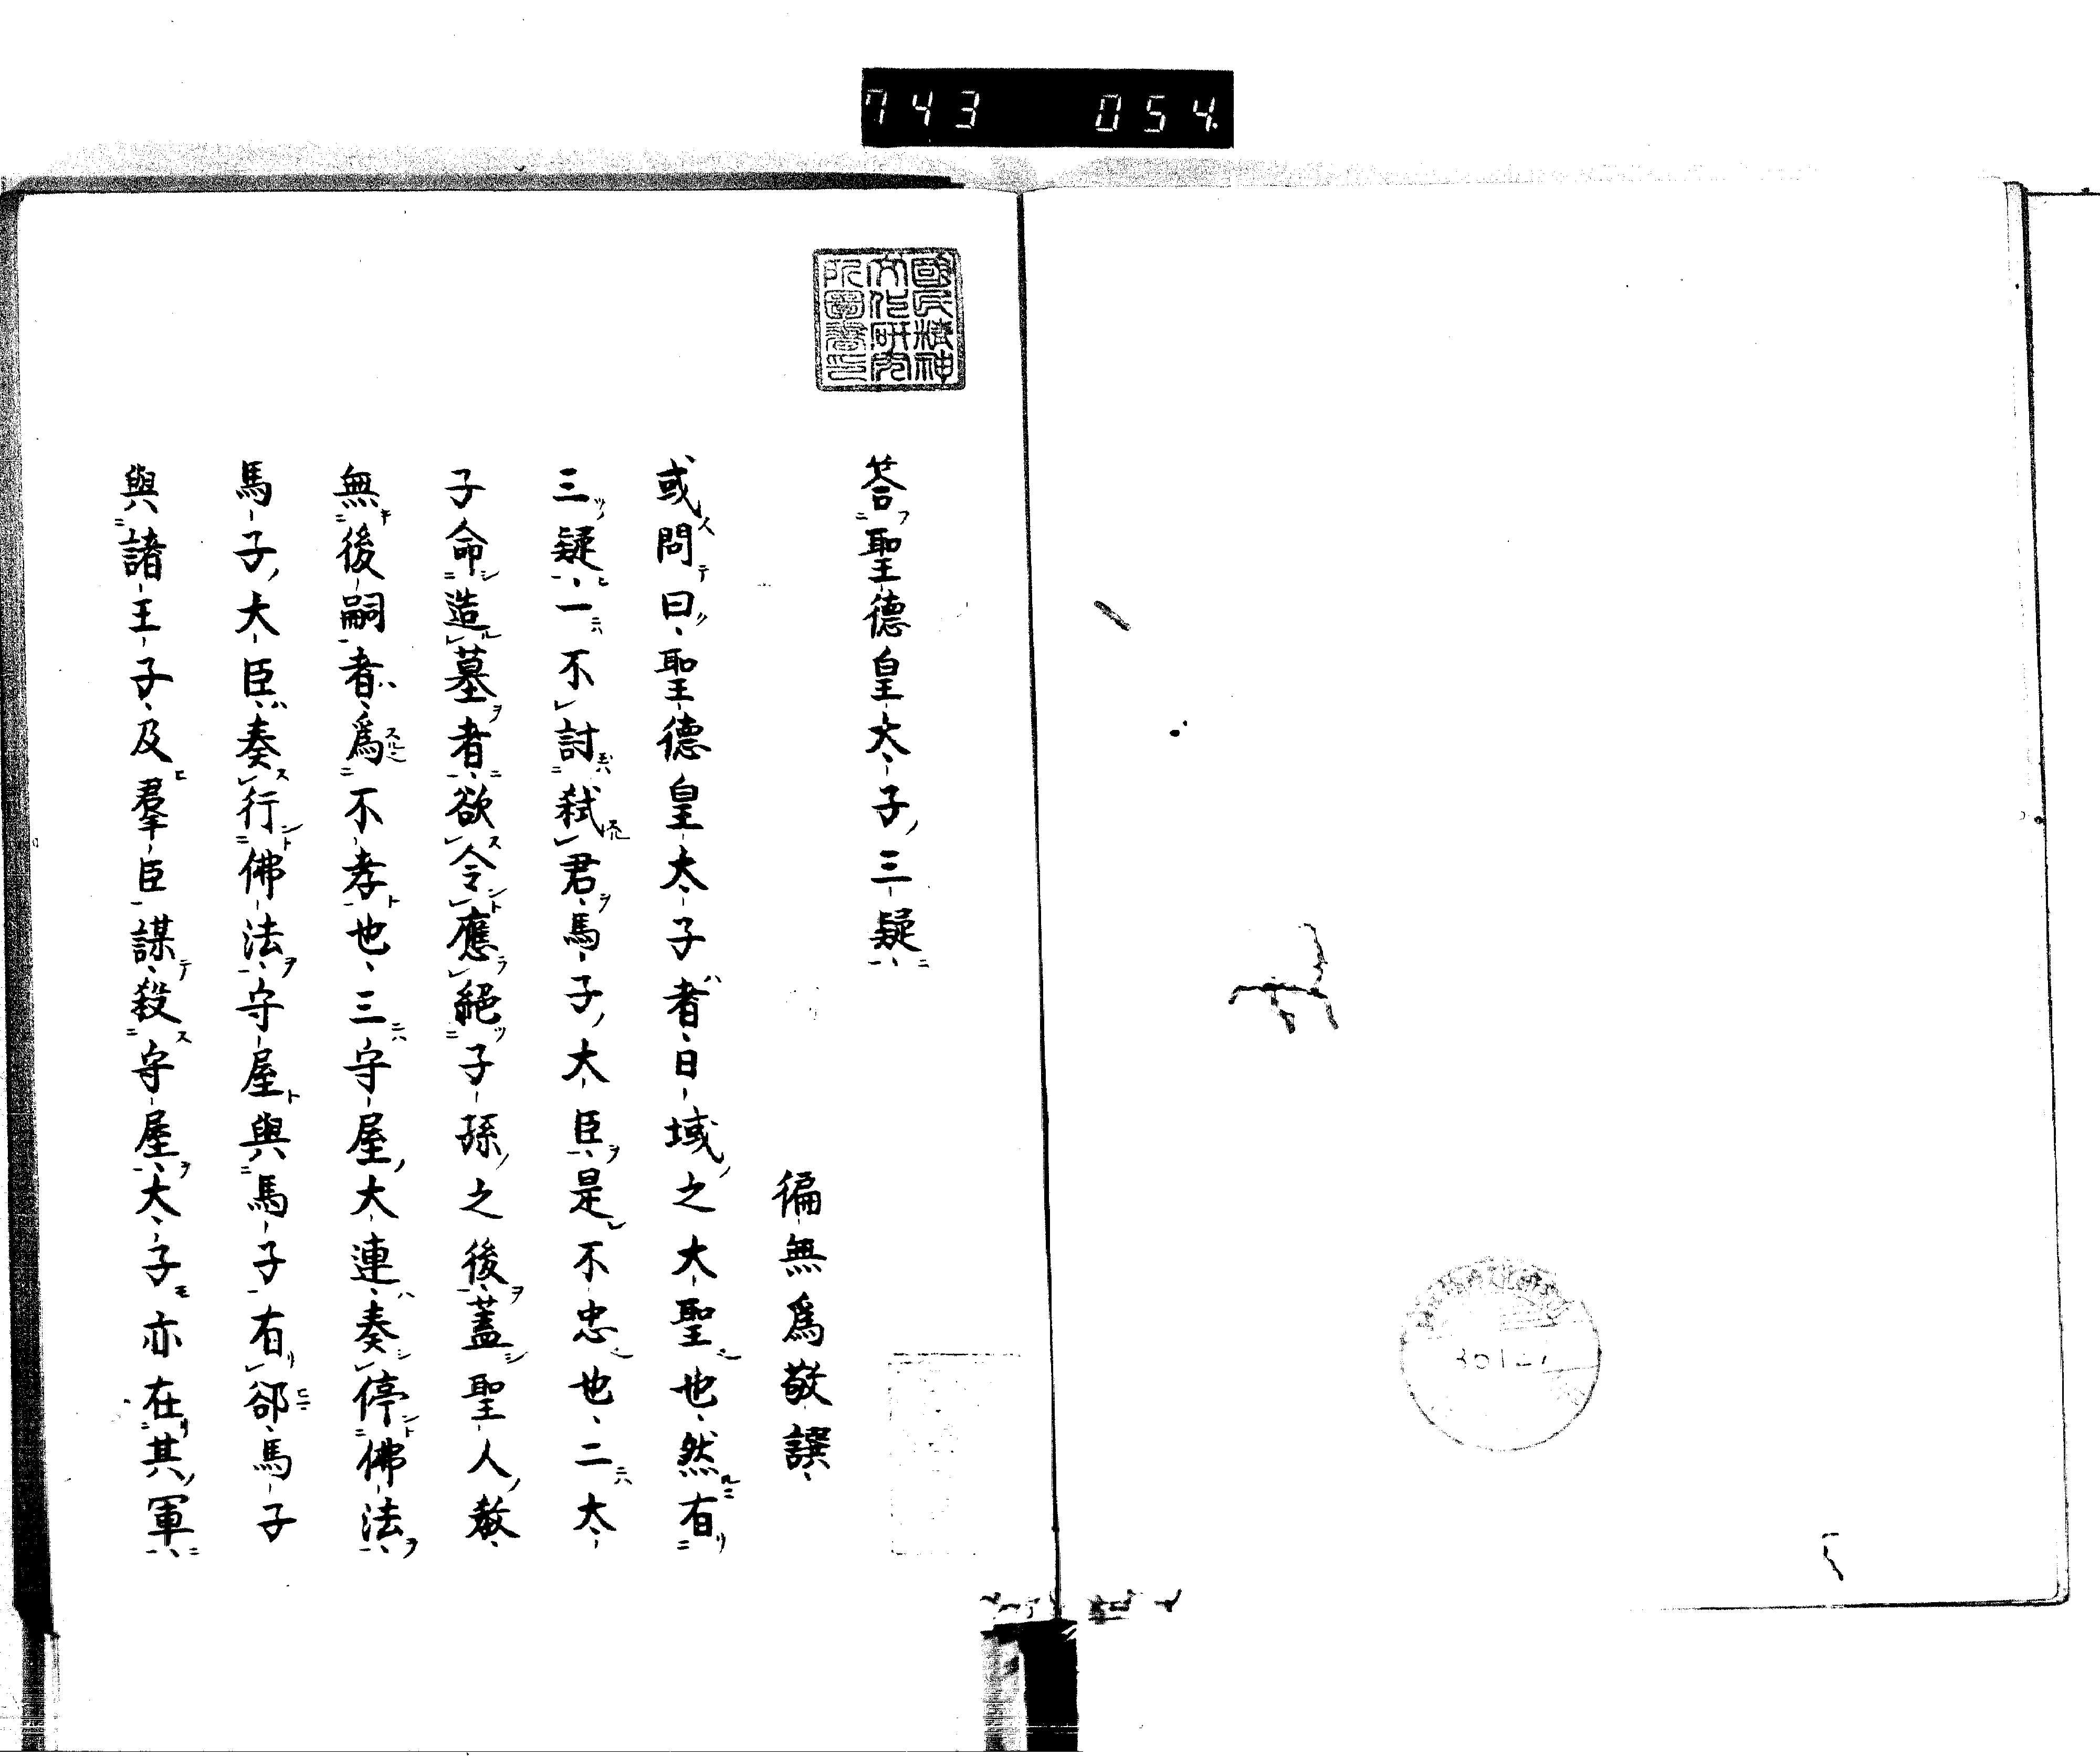 743 054
國民精神
文化研究
所圖書印
荅聖德皇太子三疑
徧無爲敬譔
或問曰聖德皇太子者日域之大聖也然有
三疑一不討弒君馬子大臣是不忠也二太
子命造墓者欲令應絕子孫之後蓋聖人教
無後嗣者爲不孝也三守屋大連奏停佛法
馬子大臣奏行佛法守屋與馬子有郤馬子
與諸王子及羣臣謀殺守屋大子亦在其軍